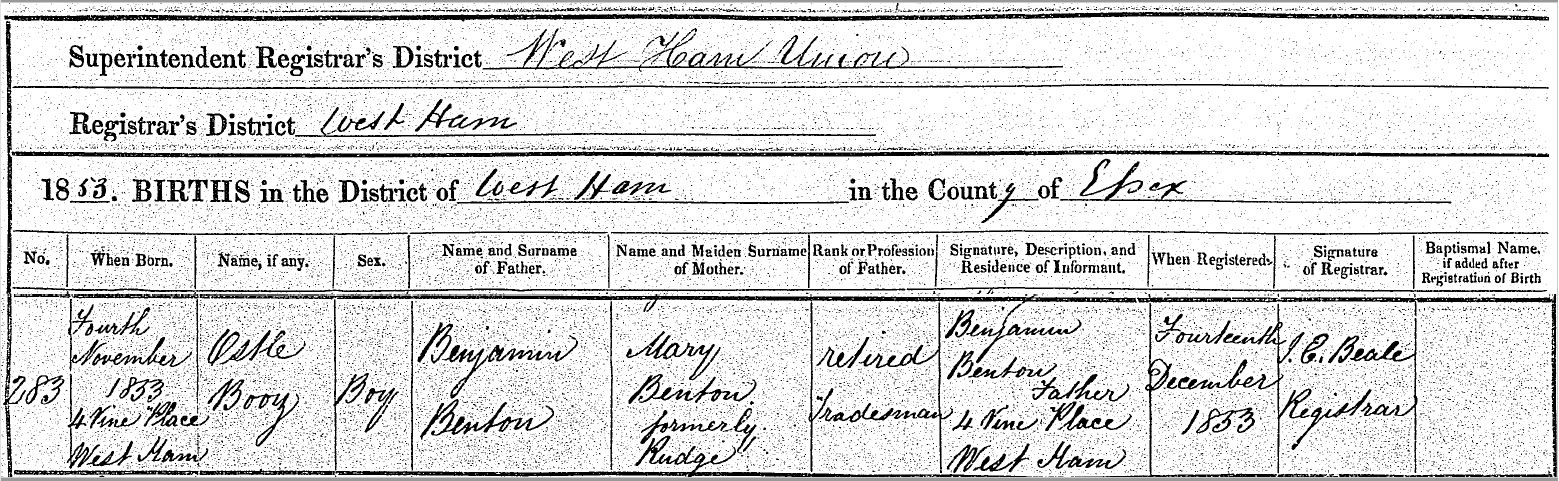 Superintendent Registrar's District West Ham Union
Registrar's District West Ham
1853. BIRTHS in the District of West Ham in the County of Essex
No.
When Born.
Name, if any.
Sex.
Name and Surname
of Father.
Name and Maiden Surname
of Mother.
Rank or Profession
of Father.
Signature, Description, and
Residence of Informant.
When Registered.
Signature
of Registrar.
Baptismal Name,
if added after
Registration of Birth
283
Fourth
November
1853
4 Vine Place
West Ham
Ostle
Booy
Boy
Benjamin
Benton
Mary
Benton
formerly
Rudge
retired
Tradesman
Benjamin
Benton
Father
4 Vine Place
West Ham
Fourteenth
December
1853
J. E. Beale
Registrar